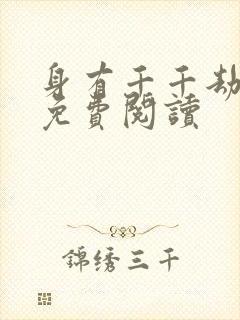 身有千千劫
免費閱讀
錦绣三千